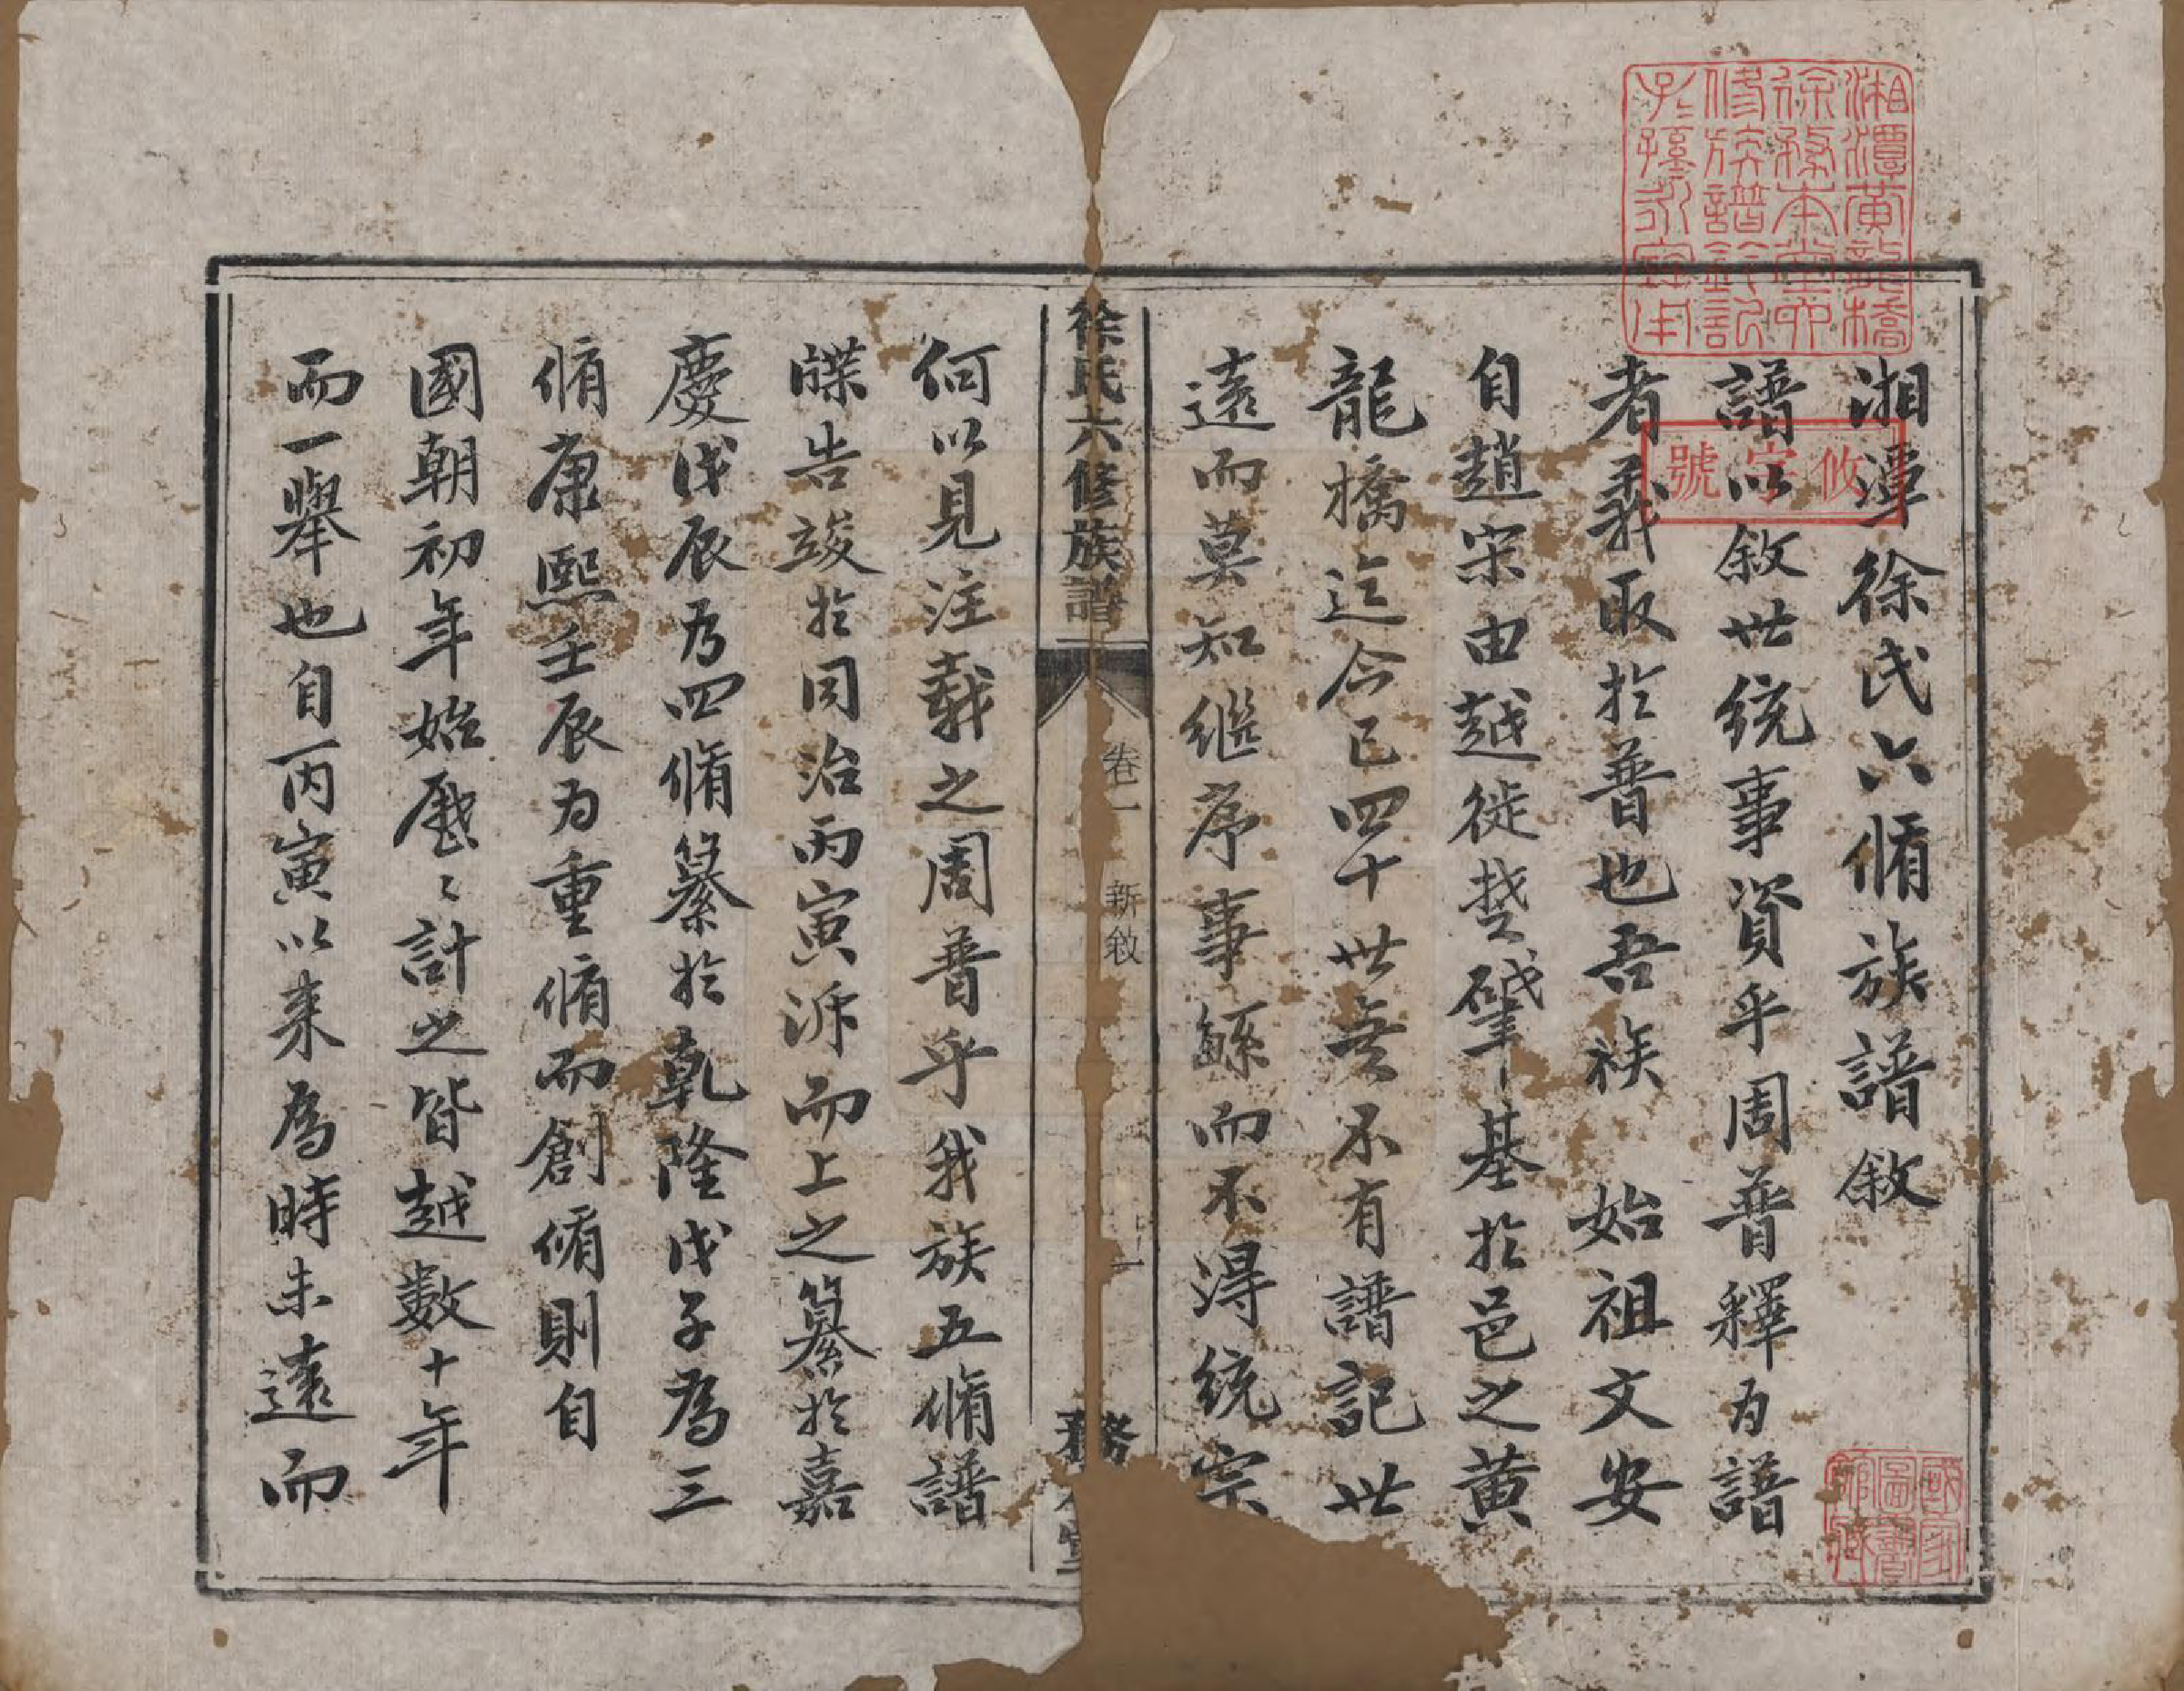 湘潭徐氏六脩族譜敘
譜以敘世統事資乎周普釋为譜
者義取扵普也吾族　始祖文安
自趙宋由越徙楚肇基扵邑之黄
龍橋迄今已四十世無不有譜記世
遠而莫知繼序事繇而不淂統宗
徐氏六修族譜
卷一
新敘
一
務本堂
何以見注載之周普乎我族五脩譜
牒告竣扵同治丙寅泝而上之纂扵嘉
慶戊辰为四脩纂扵乾隆戊子為三
脩康熙壬辰为重脩而創脩則自
國朝初年始歷〻計之皆越數十年
而一舉也自丙寅以来為時未遠而
湘潭黄龍橋
徐務本堂六
修族譜鈐記
子〻孫永寶用
攸字號
國家
圖書
館藏